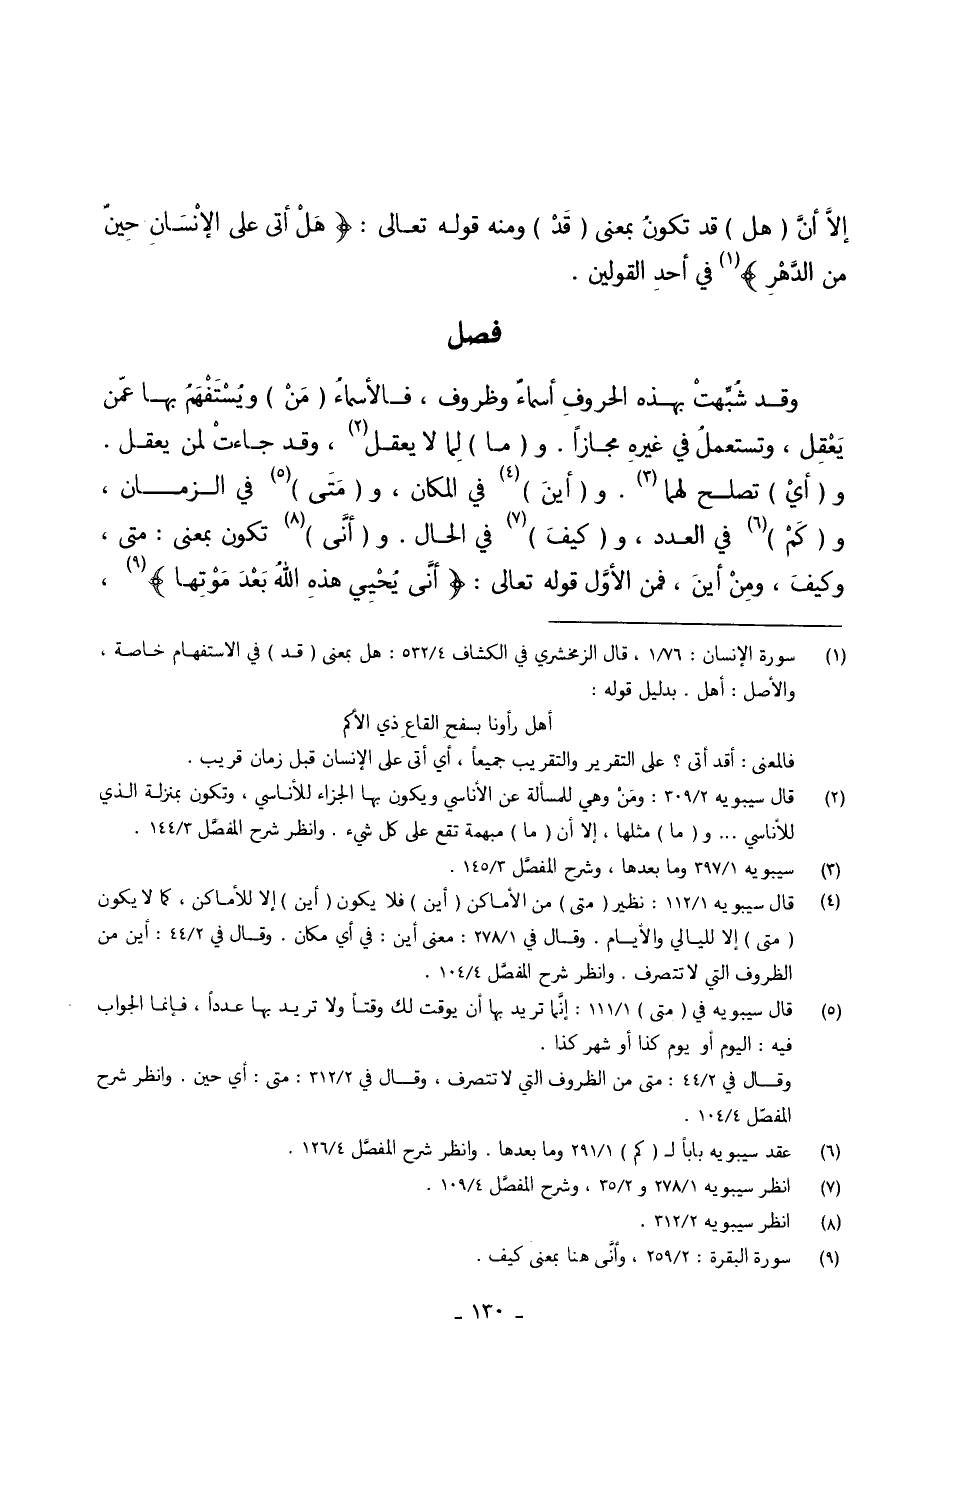 إلاَّ أنَّ ( هل ) قد تكونُ بمعنى ( قَدْ ) ومنه قوله تعالى : ﴿ هَلْ أتى على الإنْسَانِ حِينٌ
من الدَّهْرِ ﴾(١) في أحدِ القولين .
فصل
وقد شُبِّهتْ بهذه الحروفِ أسماءٌ وظروف ، فالأسماءُ ( مَنْ ) ويُسْتَفْهَمُ بها عمّن
يَعْقِل ، وتستعملُ في غيرِه مجازاً . و ( ما ) لِما لا يعقل(٢) ، وقد جاءتْ لمن يعقل .
و ( أيْ ) تصلح لهما(٣) . و ( أينَ )(٤) في المكان ، و ( مَتَى )(٥) في الزمان ،
و ( كَمْ )(٦) في العدد ، و ( كيفَ )(٧) في الحال . و ( أنَّى )(٨) تكون بمعنى : متى ،
وكيفَ ، ومِنْ أينَ ، فمن الأوَّل قوله تعالى : ﴿ أنَّى يُحْيِي هذهِ اللهُ بَعْدَ مَوْتِها ﴾(٩) ،
(١) سورة الإنسان : ١/٧٦ ، قال الزمخشري في الكشاف ٥٣٢/٤ : هل بمعنى ( قد ) في الاستفهام خاصة ،
والأصل : أهل . بدليل قوله :
أهل رأونا بسفح القاع ذي الأكم
فالمعنى : أقد أتى ؟ على التقرير والتقريب جميعاً ، أي أتى على الإنسان قبل زمان قريب .
(٢) قال سيبويه ٣٠٩/٢ : ومَنْ وهي للمسألة عن الأناسي ويكون بها الجزاء للأناسي ، وتكون بمنزلة الذي
للأناسي ... و ( ما ) مثلها ، إلا أن ( ما ) مبهمة تقع على كل شيء . وانظر شرح المفصَّل ١٤٤/٣ .
(٣) سيبويه ٣٩٧/١ وما بعدها ، وشرح المفصَّل ١٤٥/٣ .
(٤) قال سيبويه ١١٢/١ : نظير ( متى ) من الأماكن ( أين ) فلا يكون ( أين ) إلا للأماكن ، كما لا يكون
( متى ) إلا لليالي والأيام . وقال في ٢٧٨/١ : معنى أين : في أي مكان . وقال في ٤٤/٢ : أين من
الظروف التي لا تتصرف . وانظر شرح المفصَّل ١٠٤/٤ .
(٥) قال سيبويه في ( متى ) ١١١/١ : إنَّما تريد بها أن يوقت لك وقتاً ولا تريد بها عدداً ، فإنما الجواب
فيه : اليوم أو يوم كذا أو شهر كذا .
وقال في ٤٤/٢ : متى من الظروف التي لا تتصرف ، وقال في ٣١٢/٢ : متى : أي حين . وانظر شرح
المفصّل ١٠٤/٤ .
(٦) عقد سيبويه باباً لـ ( كم ) ٢٩١/١ وما بعدها . وانظر شرح المفصَّل ١٢٦/٤ .
(٧) انظر سيبويه ٢٧٨/١ و ٣٥/٢ ، وشرح المفصَّل ١٠٩/٤ .
(٨) انظر سيبويه ٣١٢/٢ .
(٩) سورة البقرة : ٢٥٩/٢ ، وأنَّى هنا بمعنى كيف .
- ١٣٠ -